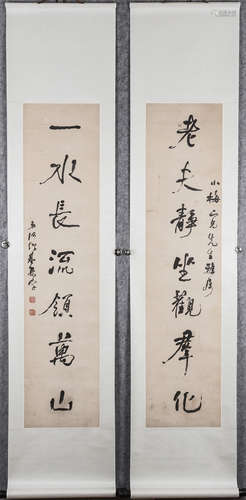 老夫靜坐觀羣化
小梅仁兄先生雅屬
一水長流領萬山